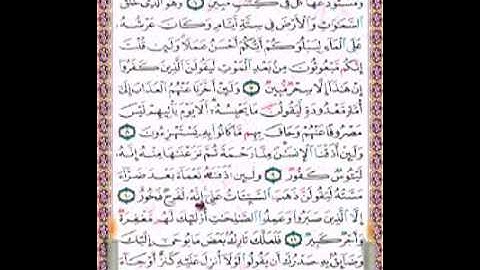 وَمُسْتَوْدَعَهَا كُلٌّ فِي كِتَابٍ مُبِينٍ ٦ وَهُوَ الَّذِي خَلَقَ
السَّمَاوَاتِ وَالْأَرْضَ فِي سِتَّةِ أَيَّامٍ وَكَانَ عَرْشُهُ
عَلَى الْمَاءِ لِيَبْلُوَكُمْ أَيُّكُمْ أَحْسَنُ عَمَلًا وَلَئِنْ قُلْتَ
إِنَّكُمْ مَبْعُوثُونَ مِنْ بَعْدِ الْمَوْتِ لَيَقُولَنَّ الَّذِينَ كَفَرُوا
إِنْ هَٰذَا إِلَّا سِحْرٌ مُبِينٌ ٧ وَلَئِنْ أَخَّرْنَا عَنْهُمُ الْعَذَابَ إِلَى
أُمَّةٍ مَعْدُودَةٍ لَيَقُولُنَّ مَا يَحْبِسُهُ أَلَا يَوْمَ يَأْتِيهِمْ لَيْسَ
مَصْرُوفًا عَنْهُمْ وَحَاقَ بِهِمْ مَا كَانُوا بِهِ يَسْتَهْزِءُونَ ٨
وَلَئِنْ أَذَقْنَا الْإِنْسَانَ مِنَّا رَحْمَةً ثُمَّ نَزَعْنَاهَا مِنْهُ إِنَّهُ
لَيَئُوسٌ كَفُورٌ ٩ وَلَئِنْ أَذَقْنَاهُ نَعْمَاءَ بَعْدَ ضَرَّاءَ
مَسَّتْهُ لَيَقُولَنَّ ذَهَبَ السَّيِّئَاتُ عَنِّي إِنَّهُ لَفَرِحٌ فَخُورٌ ١٠
إِلَّا الَّذِينَ صَبَرُوا وَعَمِلُوا الصَّالِحَاتِ أُولَٰئِكَ لَهُمْ مَغْفِرَةٌ
وَأَجْرٌ كَبِيرٌ ١١ فَلَعَلَّكَ تَارِكٌ بَعْضَ مَا يُوحَىٰ إِلَيْكَ
وَضَائِقٌ بِهِ صَدْرُكَ أَنْ يَقُولُوا لَوْلَا أُنْزِلَ عَلَيْهِ كَنْزٌ أَوْ جَاءَ